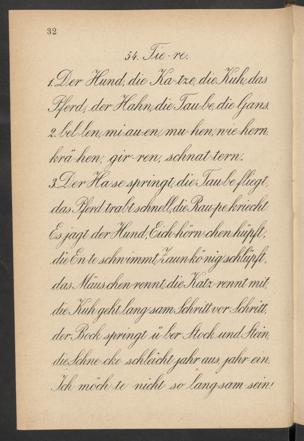 32
54. Tie-re.
1. Der Hund, die Ka-tze, die Kuh, das
Pferd, der Hahn, die Tau-be, die Gans.
2. bel-len, mi-au-en, mu-hen, wie-hern,
krä-hen, gir-ren, schnat-tern.
3. Der Ha-se springt, die Tau-be fliegt,
das Pferd trabt schnell, die Rau-pe kriecht.
Es jagt der Hund, Eich-hörn-chen hüpft,
die En-te schwimmt, Zaun-kö-nig schlüpft,
das Mäus-chen rennt, die Katz rennt mit,
die Kuh geht lang-sam Schritt vor Schritt,
der Bock springt ü-ber Stock und Stein,
die Schne-cke schleicht jahr aus, jahr ein.
Ich möch-te nicht so lang-sam sein!